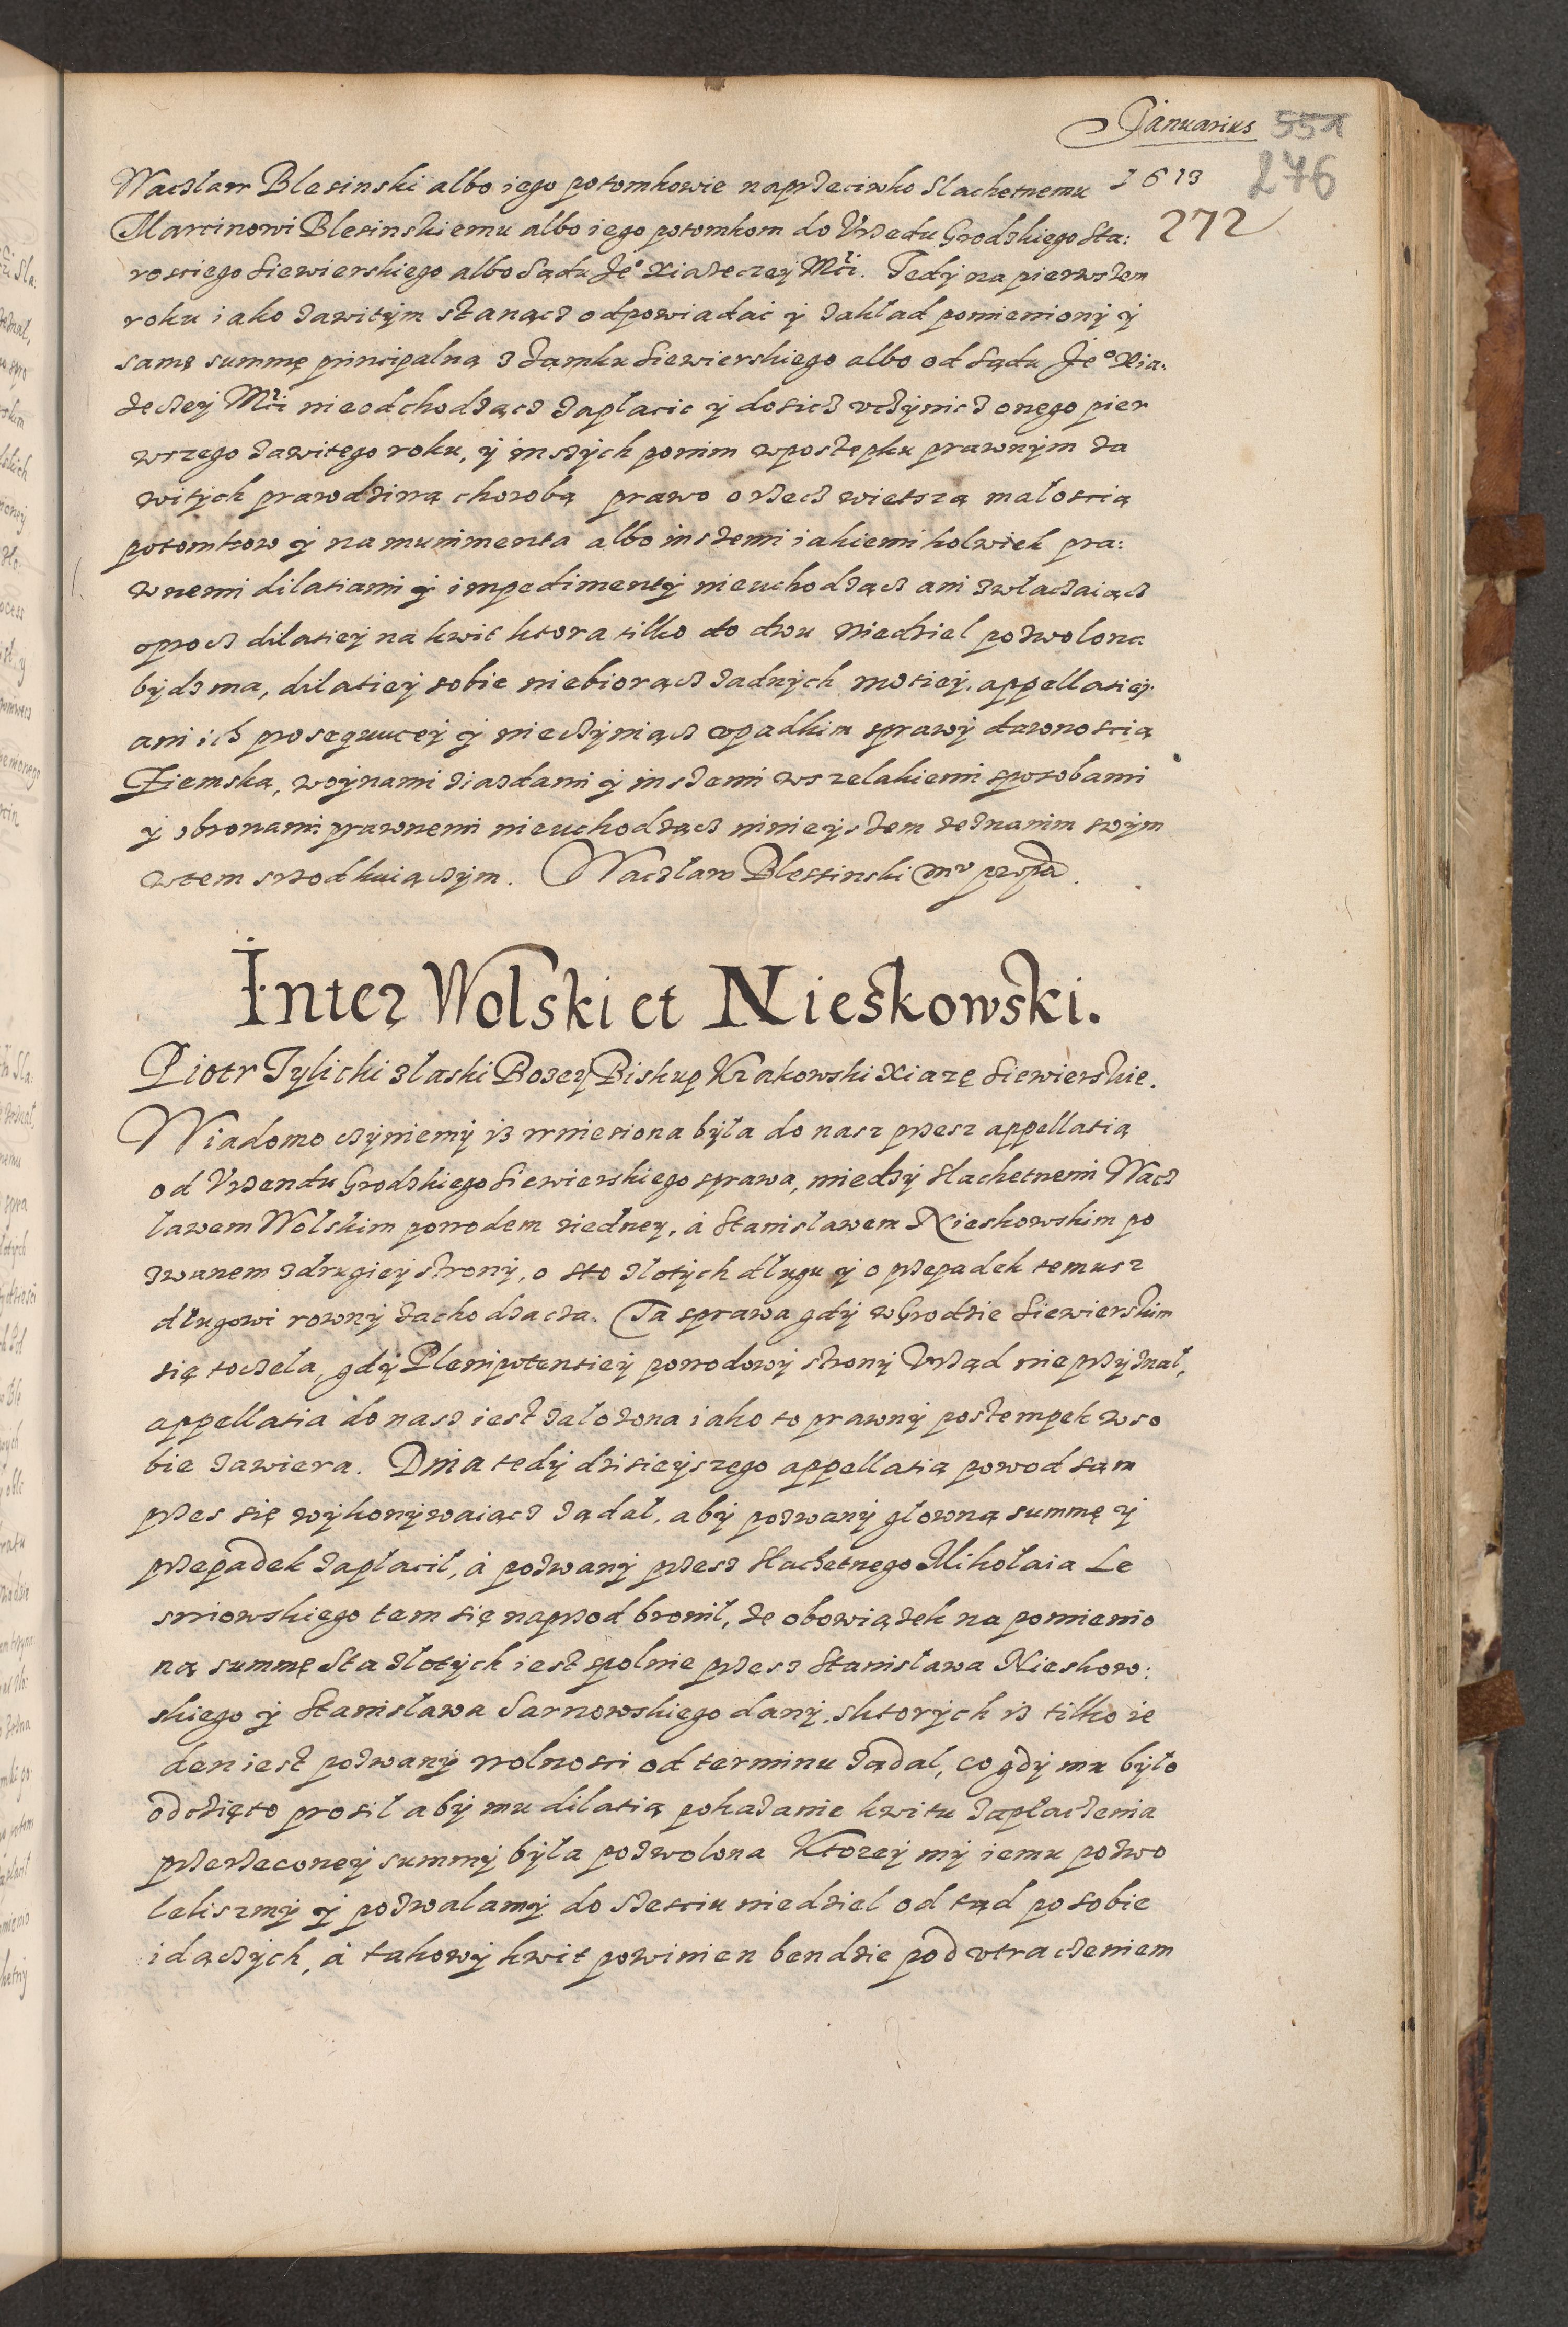 Januarius 551
1613 276
272
Waczlaw Blesinski albo iego potomkowie naprzeciwko Slachetnemu
Marcinowi Blesinskiemu albo iego potomkom do Vrzedu Grodzkiego Sta:
rosciego Siewierskiego albo Sądu Je° Xiazeczey Mści. Tedy na pierwszem
roku iako zawitym stanącz odpowiadać y zakład pomieniony y
samę summę principalną z Zamku Siewierskiego albo od Sądu Je° Xia:
zeczey Mści nieodchodzącz zaplacic y dosicz vczynicz onego pier
wszego zawitego roku, y inszych ponim wpostępku prawnym za
witych prawdziwą chorobą prawo o rzecz wietszą małoscią
potomkow y na munimenta albo inszemi iakiemikolwiek pra:
wnemi dilatiami y impedimenty nieuchodzącz ani zwlaczaiącz
oprocz dilatiey na kwit ktora tilko do dwu Niedziel pozwolona
bydz ma, dilatiey sobie niebiorącz zadnych motiey, appellatiey
ani ich prosequucey y nieczyniącz vpadkim sprawy dawnoscią
Ziemska, woynami ziazdami y inszemi wszelakiemi sposobami
y obronami prawnemi nieuchodzącz ninieyszem zeznanim swym
wtem srzodkuiączym. Waczlaw Blestinski
Inter Wolski et Nieskowski.
Piotr Tylicki z laski Bozey Biskup Krakowski Xiazę Siewierskie.
Wiadomo czyniemy iz wniesiona była do nasz przesz appellatią
od Vrzendu Grodzkiego Siewierskiego sprawa, miedzy Slachetnemi Wacz
lawem Wolskim powodem ziedney, á Stanislawem Nieskowskim po
zwanem zdrugiey strony, o sto zlotych długu y o przepadek temusz
długowi rowny zachodzacza. Ta sprawa gdy w Grodzie Siewierskim
się toczela, gdy Plenipotentiey powodowy strony Vrząd nie przyznal,
appellatia do nasz iest zalozona iako to prawny postempek wso
bie zawiera. Dnia tedy dzisieyszego appellatią powod sąm
przes się wykonywaiącz ządał, aby pozwany glowną summę y
przepadek zaplacil, á pozwany przesz Slachetnego Mikołaia Le
sniowskiego tem się naprzod bronil, ze obowiązek na pomienio
ną summę Sta zlotych iest spolnie przesz Stanisława Nieskow:
skiego y Stanisława Sarnowskiego dany, sktorych iz tilko ie
den iest pozwany wolnosci od terminu ządal, co gdy mu było
odczięto prosil aby mu dilatią pokazanie kwitu zaplaczenia
przerzeconey summy była pozwolona Ktorey my iemu pozwo
leliszmy y pozwalamy do szesciu niedziel od tąd po sobie
idączych, á takowy kwit powinien bendzie pod vtraczeniem